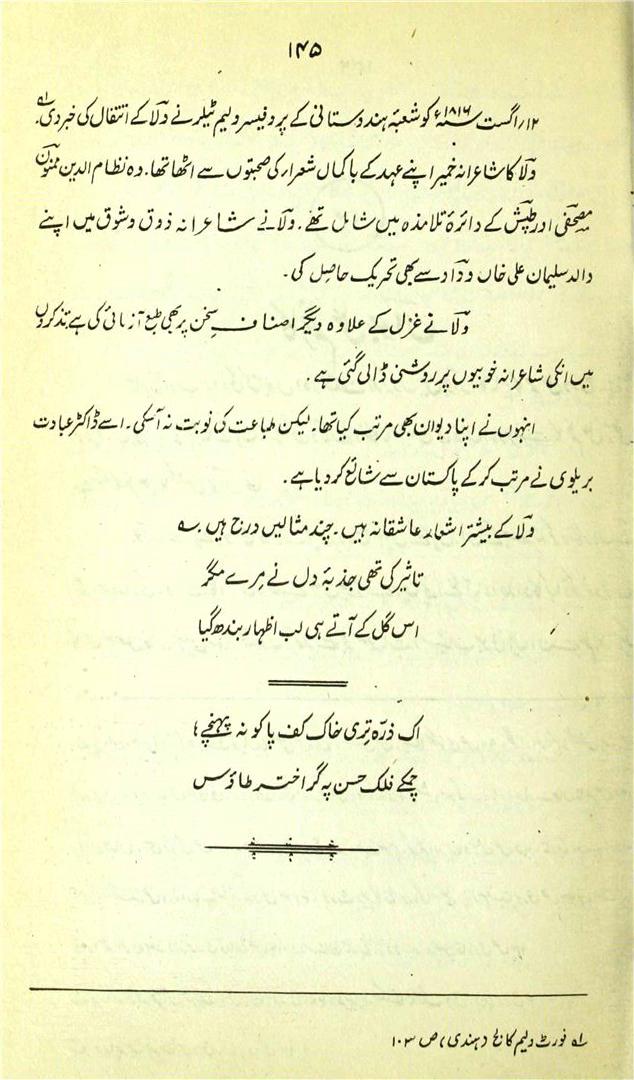 ۱۴۵
۱۲؍اگست ۱۸۱۶ء کو شعبۂ ہندوستانی کے پروفیسر ولیم ٹیلر نے ولاؔ کے انتقال کی خبر دی۔؂۱
ولاؔ کا شاعرانہ خمیر اپنے عہد کے باکمال شعراء کی صحبتوں سے اٹھا تھا۔ وہ نظام الدین ممنونؔ
مصحفیؔ اور طپشؔ کے دائرۂ تلامذہ میں شامل تھے۔ ولاؔ نے شاعرانہ ذوق و شوق میں اپنے
والد سلیمان علی خاں ودادؔ سے بھی تحریک حاصل کی۔
ولاؔ نے غزل کے علاوہ دیگر اصناف سخن پر بھی طبع آزمائی کی ہے تذکروں
میں انکی شاعرانہ خوبیوں پر روشنی ڈالی گئی ہے۔
انہوں نے اپنا دیوان بھی مرتب کیا تھا۔ لیکن طباعت کی نوبت نہ آسکی۔ اسے ڈاکٹر عبادت
بریلوی نے مرتب کرکے پاکستان سے شائع کر دیا ہے۔
ولاؔ کے بیشتر اشعار عاشقانہ ہیں۔ چند مثالیں درج ہیں ؂
تاثیر کی تھی جذبۂ دل نے مرے مگر
اس گل کے آتے ہی لب اظہار بندھ گیا
اک ذرّہ تری خاک کف پا کو نہ پہنچے؛
چمکے فلک حسن پہ گر اختر طاؤس
؂۱ فورٹ ولیم کالج (ہندی) ص ۱۰۳